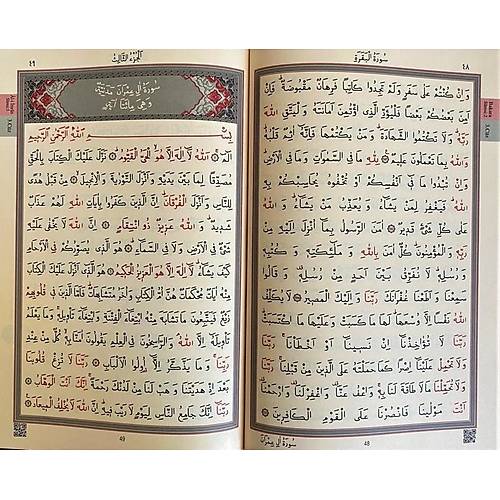 ٤٨
سُورَةُ الْبَقَرَةِ
وَاِنْ كُنْتُمْ عَلٰى سَفَرٍ وَلَمْ تَجِدُوا كَاتِبًا فَرِهَانٌ مَقْبُوضَةٌ فَاِنْ
اَمِنَ بَعْضُكُمْ بَعْضًا فَلْيُؤَدِّ الَّذِى اؤْتُمِنَ اَمَانَتَهُ وَلْيَتَّقِ اللّٰهَ
رَبَّهُ وَلَا تَكْتُمُوا الشَّهَادَةَ وَمَنْ يَكْتُمْهَا فَاِنَّهُ اٰثِمٌ قَلْبُهُ وَ
اللّٰهُ بِمَا تَعْمَلُونَ عَلِيمٌ لِلّٰهِ مَا فِى السَّمٰوَاتِ وَمَا فِى الْاَرْضِ
وَاِنْ تُبْدُوا مَا فِى اَنْفُسِكُمْ اَوْ تُخْفُوهُ يُحَاسِبْكُمْ بِهِ
اللّٰهُ فَيَغْفِرُ لِمَنْ يَشَاءُ وَيُعَذِّبُ مَنْ يَشَاءُ وَاللّٰهُ
عَلٰى كُلِّ شَىْءٍ قَدِيرٌ اٰمَنَ الرَّسُولُ بِمَا اُنْزِلَ اِلَيْهِ مِنْ
رَبِّهِ وَالْمُؤْمِنُونَ كُلٌّ اٰمَنَ بِاللّٰهِ وَمَلٰئِكَتِهِ وَكُتُبِهِ
وَرُسُلِهِ لَا نُفَرِّقُ بَيْنَ اَحَدٍ مِنْ رُسُلِهِ وَقَالُوا
سَمِعْنَا وَاَطَعْنَا غُفْرَانَكَ رَبَّنَا وَاِلَيْكَ الْمَصِيرُ لَا يُكَلِّفُ
اللّٰهُ نَفْسًا اِلَّا وُسْعَهَا لَهَا مَا كَسَبَتْ وَعَلَيْهَا مَا اكْتَسَبَتْ
رَبَّنَا لَا تُؤَاخِذْنَا اِنْ نَسِينَا اَوْ اَخْطَأْنَا رَبَّنَا
وَلَا تَحْمِلْ عَلَيْنَا اِصْرًا كَمَا حَمَلْتَهُ عَلَى الَّذِينَ مِنْ قَبْلِنَا رَبَّنَا
وَلَا تُحَمِّلْنَا مَا لَا طَاقَةَ لَنَا بِهِ وَاعْفُ عَنَّا وَاغْفِرْ لَنَا وَارْحَمْنَا
اَنْتَ مَوْلٰينَا فَانْصُرْنَا عَلَى الْقَوْمِ الْكَافِرِينَ
سُورَةُ اٰلِ عِمْرٰنَ
48
٤٩
اَلْجُزْءُ الثَّالِثُ
سُورَةُ اٰلِ عِمْرٰنَ مَدَنِيَّةٌ
وَهِىَ مِائَتَا اٰيَةٍ
بِسْمِ اللّٰهِ الرَّحْمٰنِ الرَّحِيمِ
الٓمٓ اَللّٰهُ لَا اِلٰهَ اِلَّا هُوَ الْحَىُّ الْقَيُّومُ نَزَّلَ عَلَيْكَ الْكِتَابَ بِالْحَقِّ
مُصَدِّقًا لِمَا بَيْنَ يَدَيْهِ وَاَنْزَلَ التَّوْرٰيةَ وَالْاِنْجِيلَ مِنْ قَبْلُ هُدًى
لِلنَّاسِ وَاَنْزَلَ الْفُرْقَانَ اِنَّ الَّذِينَ كَفَرُوا بِاٰيَاتِ اللّٰهِ لَهُمْ عَذَابٌ
شَدِيدٌ وَاللّٰهُ عَزِيزٌ ذُو انْتِقَامٍ اِنَّ اللّٰهَ لَا يَخْفٰى عَلَيْهِ
شَىْءٌ فِى الْاَرْضِ وَلَا فِى السَّمَاءِ هُوَ الَّذِى يُصَوِّرُكُمْ فِى الْاَرْحَامِ
كَيْفَ يَشَاءُ لَا اِلٰهَ اِلَّا هُوَ الْعَزِيزُ الْحَكِيمُ هُوَ الَّذِى اَنْزَلَ عَلَيْكَ الْكِتَابَ
مِنْهُ اٰيَاتٌ مُحْكَمَاتٌ هُنَّ اُمُّ الْكِتَابِ وَاُخَرُ مُتَشَابِهَاتٌ فَاَمَّا الَّذِينَ فِى قُلُوبِهِمْ
زَيْغٌ فَيَتَّبِعُونَ مَا تَشَابَهَ مِنْهُ ابْتِغَاءَ الْفِتْنَةِ وَابْتِغَاءَ تَأْوِيلِهِ وَمَا يَعْلَمُ
تَأْوِيلَهُ اِلَّا اللّٰهُ وَالرَّاسِخُونَ فِى الْعِلْمِ يَقُولُونَ اٰمَنَّا بِهِ كُلٌّ مِنْ عِنْدِ
رَبِّنَا وَمَا يَذَّكَّرُ اِلَّا اُولُوا الْاَلْبَابِ رَبَّنَا لَا تُزِغْ قُلُوبَنَا
بَعْدَ اِذْ هَدَيْتَنَا وَهَبْ لَنَا مِنْ لَدُنْكَ رَحْمَةً اِنَّكَ اَنْتَ الْوَهَّابُ
رَبَّنَا اِنَّكَ جَامِعُ النَّاسِ لِيَوْمٍ لَا رَيْبَ فِيهِ اِنَّ اللّٰهَ لَا يُخْلِفُ الْمِيعَادَ
49